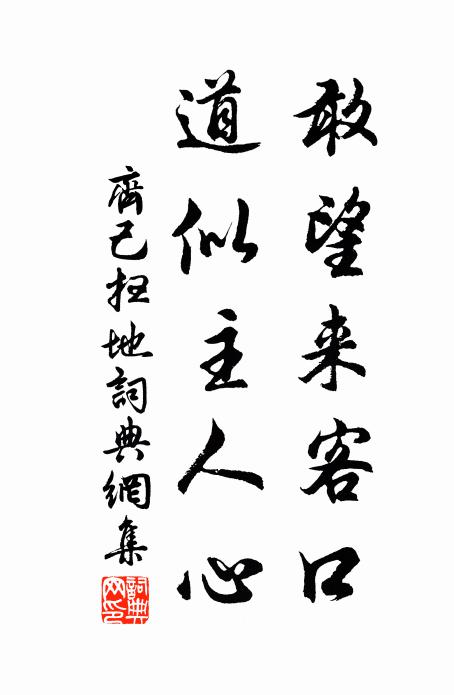 敢望来客口
道似主人心
齊己扫地詞典網集
詞典网印